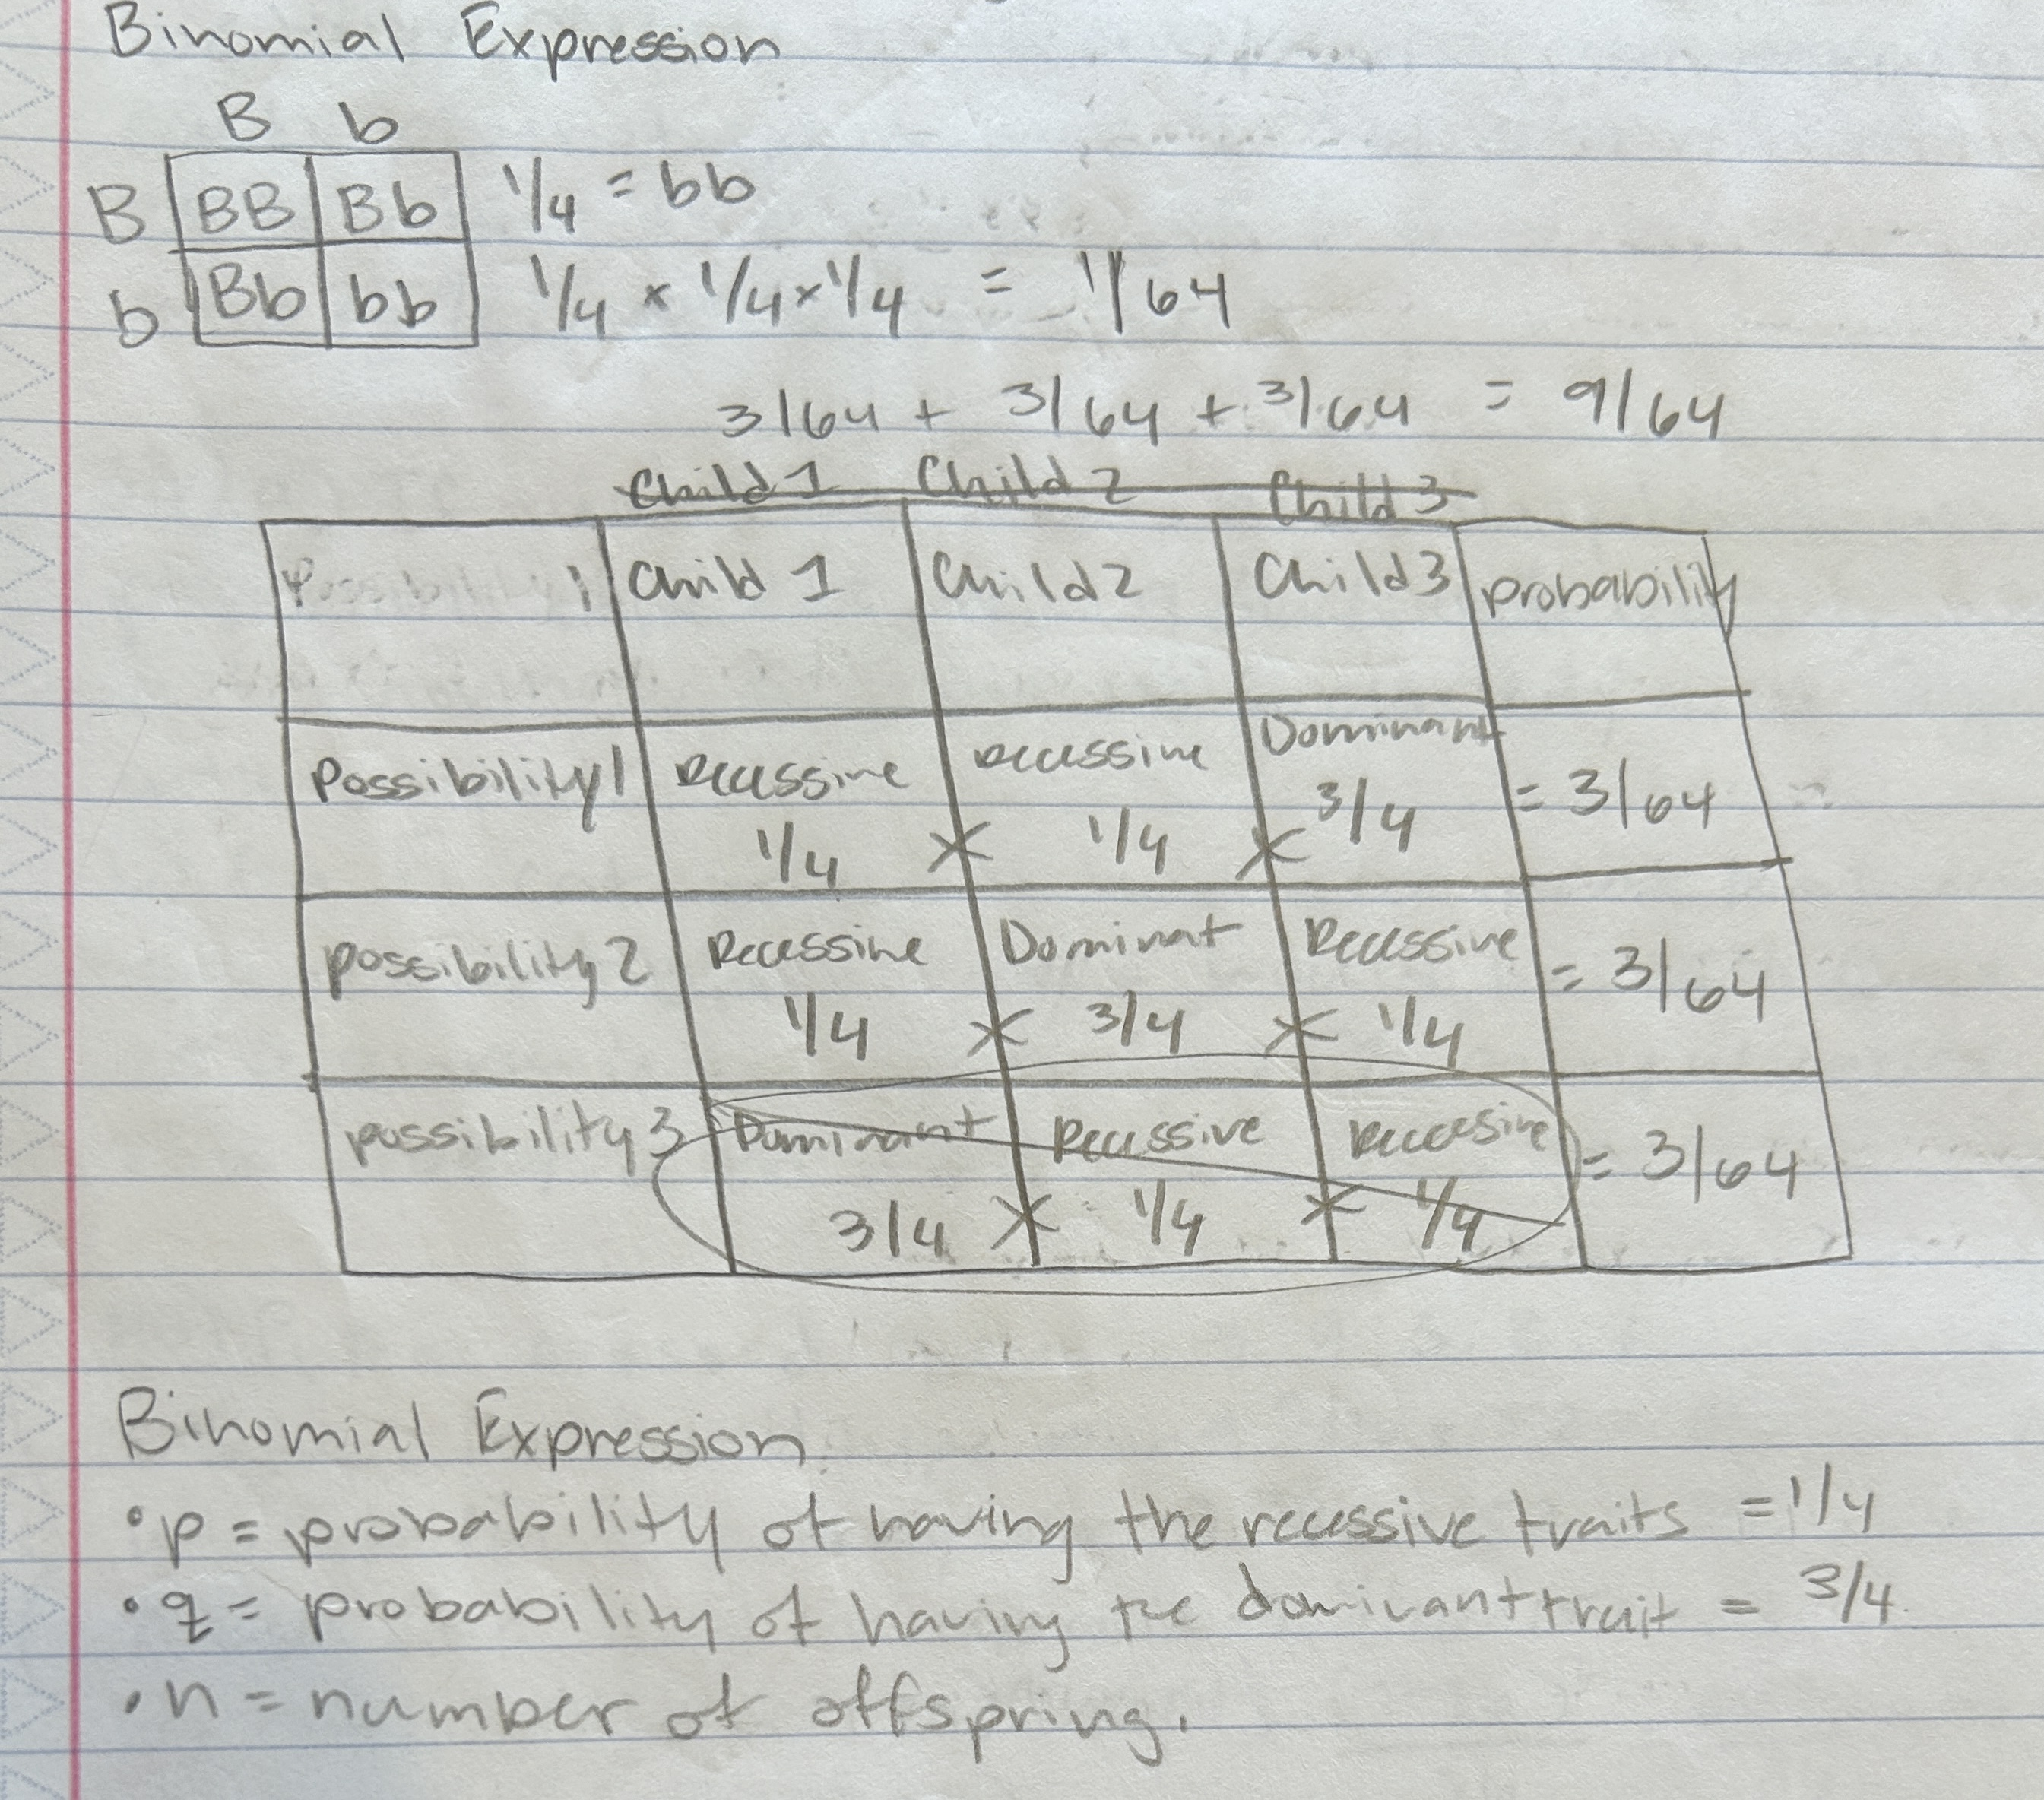 Binomial Expression
B b
B BB Bb 1/4 = bb
b Bb bb 1/4 x 1/4 x 1/4 = 1/64
3/64 + 3/64 + 3/64 = 9/64
Child 1 Child 2 Child 3
Possibility 1 Child 1 Child 2 Child 3 probability
Possibility 1 Recessive recessive Dominant
1/4 x 1/4 x 3/4 = 3/64
possibility 2 Recessive Dominat Recessive
1/4 x 3/4 x 1/4 = 3/64
possibility 3 Dominant Recessive Recessive
3/4 x 1/4 x 1/4 = 3/64
Binomial Expression
• p = probability of having the recessive traits = 1/4
• q = probability of having the dominant trait = 3/4
• n = number of offspring.